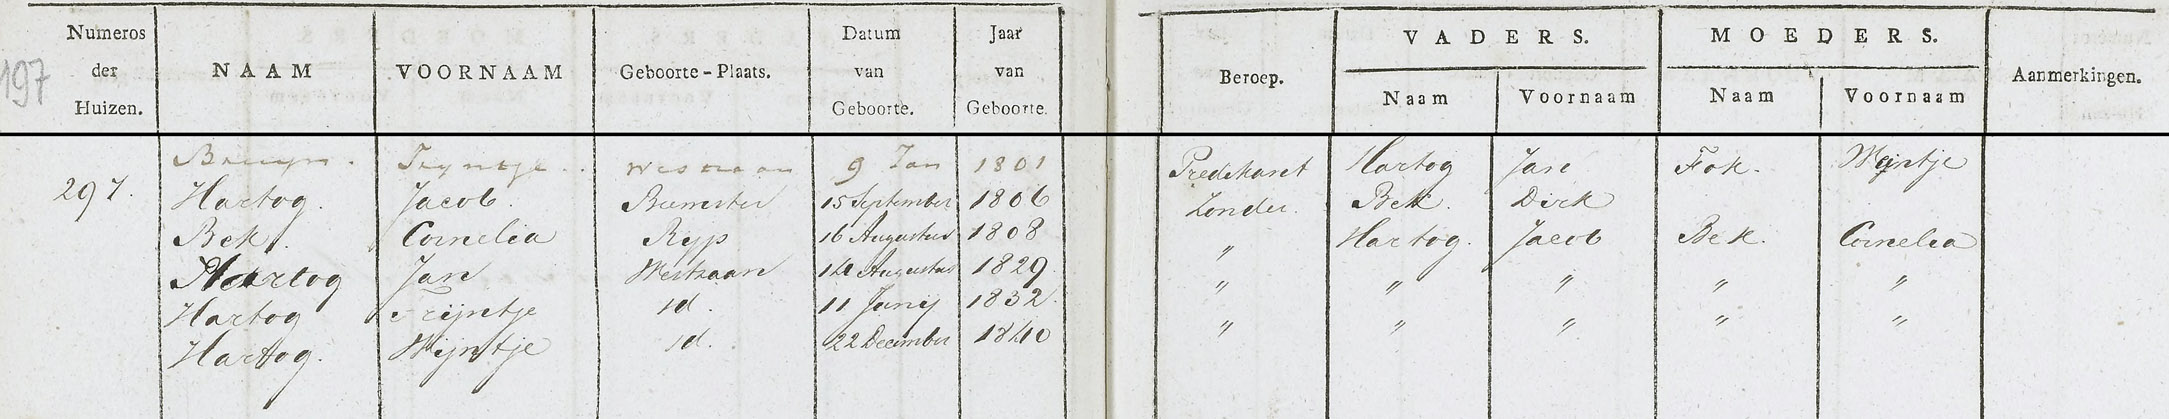 Numeros der Huizen. NAAM VOORNAAM Geboorte-Plaats. Datum van Geboorte. Jaar van Geboorte. Beroep. VADERS. Naam Voornaam MOEDERS. Naam Voornaam Aanmerkingen.
197
Bruijn. Trijntje. Westzaan 9 Jan 1801
297. Hartog. Jacob. Beemster 15 September 1806 Predikant Hartog Jan Fok. Weijntje
Bek. Cornelia Ryp 16 Augustus 1808 Zonder. Bek. Dirk
Hartog Jan Westzaan 14 Augustus 1829 " Hartog. Jacob Bek. Cornelia
Hartog Trijntje id. 11 Junij 1832. " " " " "
Hartog. Weijntje id. 22 December 1840 " " " " "